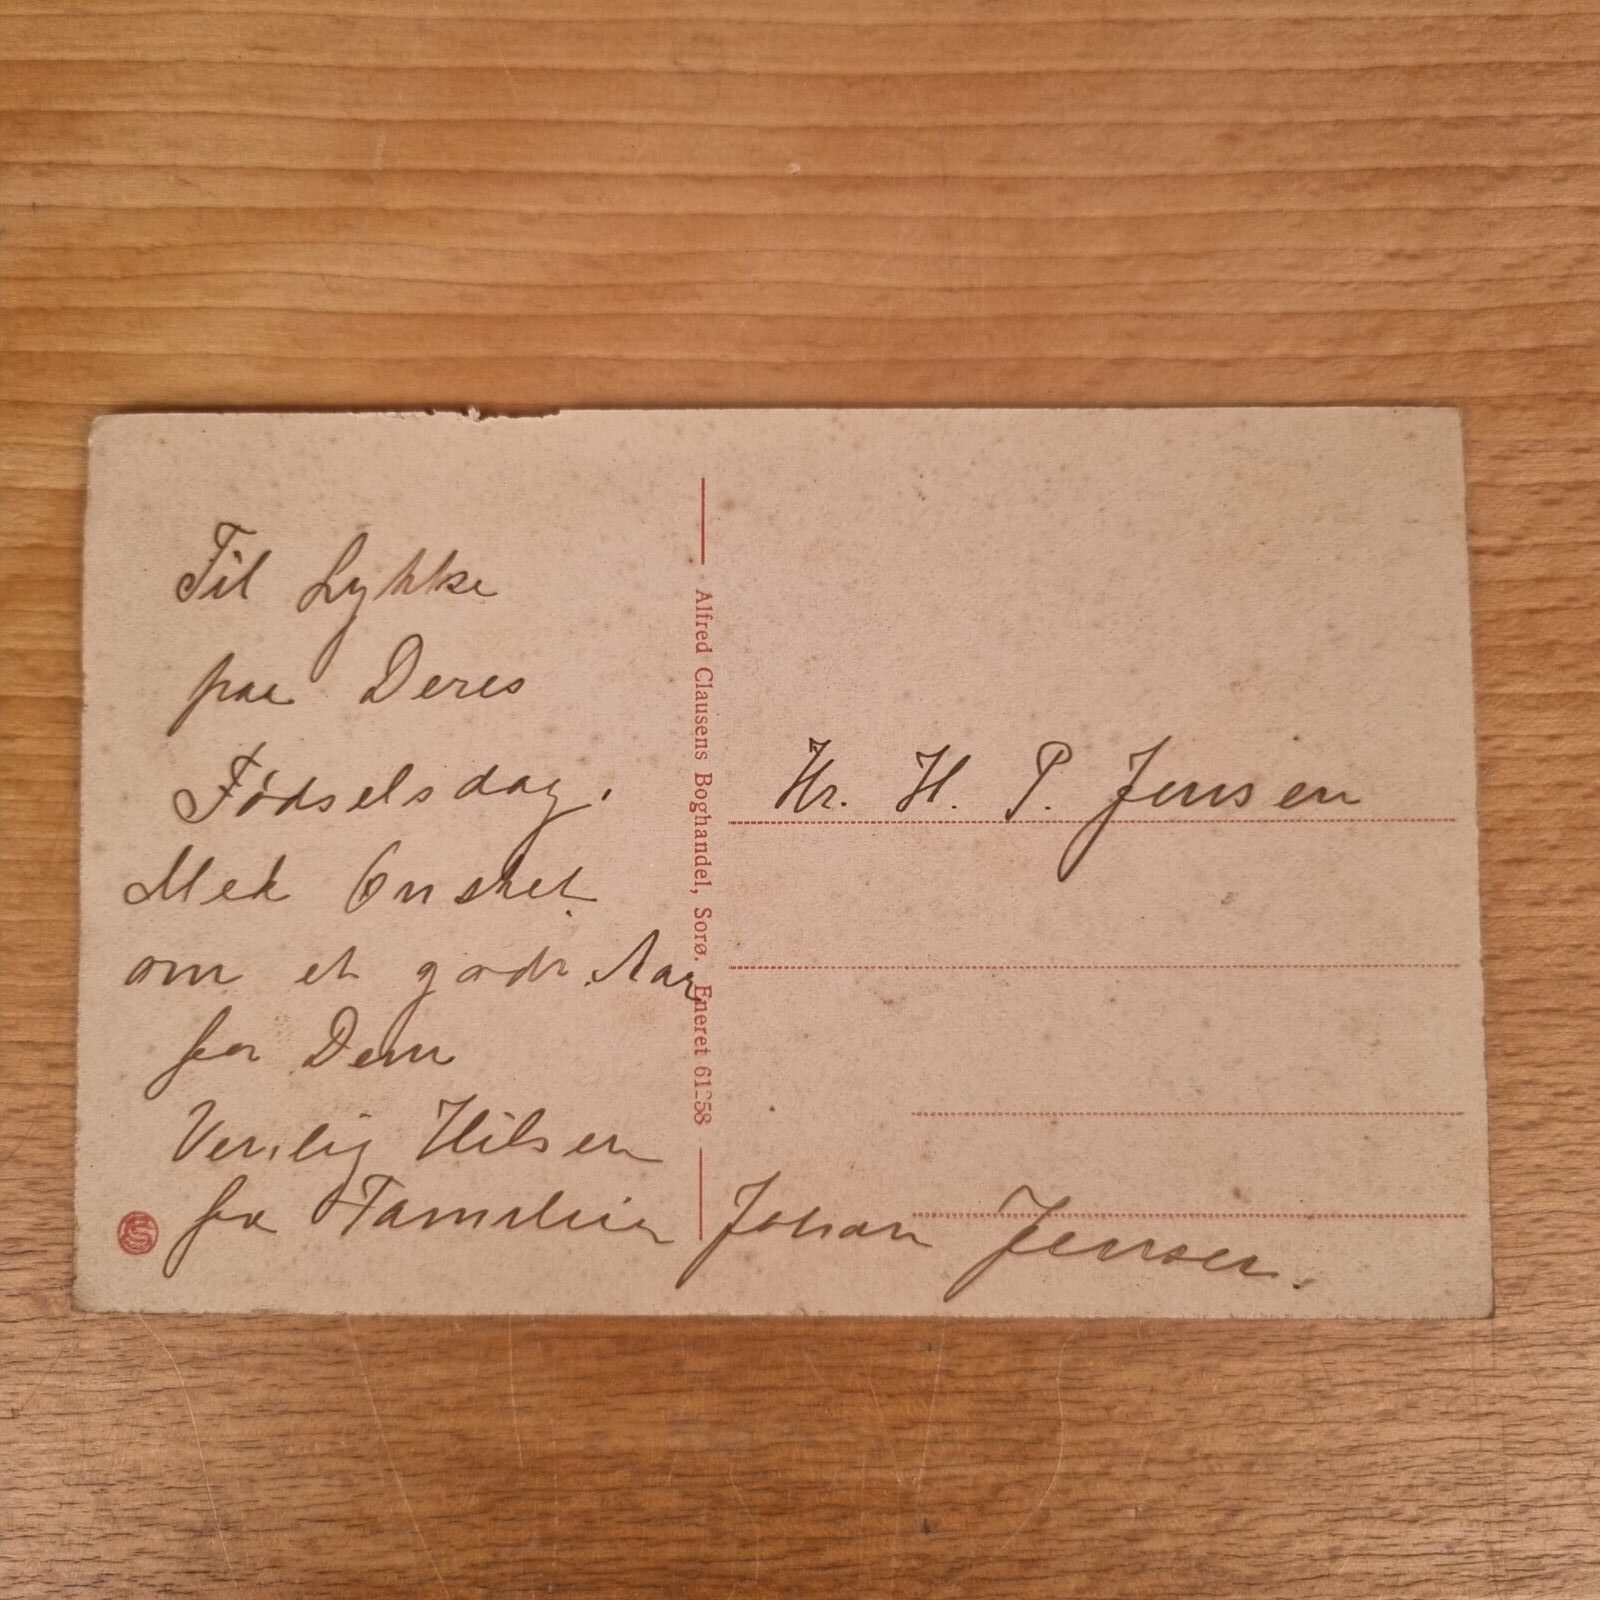 Til Lykke
paa Deres
Fødselsdag.
Med Ønsket
om et godt Aar
for Dem
Venlig Hilsen
fra Familien Johan Jensen.
Alfred Clausens Boghandel, Sorø. Eneret
Hr. H. P. Jensen